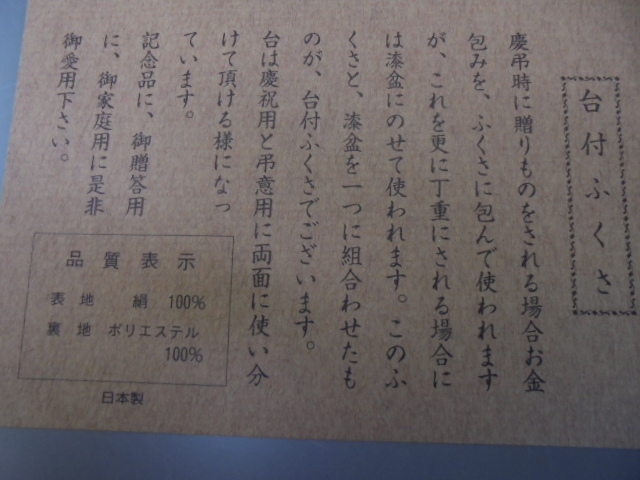 台付ふくさ
慶弔時に贈りものをされる場合お金
包みを、ふくさに包んで使われます
が、これを更に丁重にされる場合に
は漆盆にのせて使われます。このふ
くさと、漆盆を一つに組合わせたも
のが、台付ふくさでございます。
台は慶祝用と弔意用に両面に使い分
けて頂ける様になっ
ています。
記念品に、御贈答用
に、御家庭用に是非
御愛用下さい。
品質表示
表地 絹 100%
裏地 ポリエステル
100%
日本製